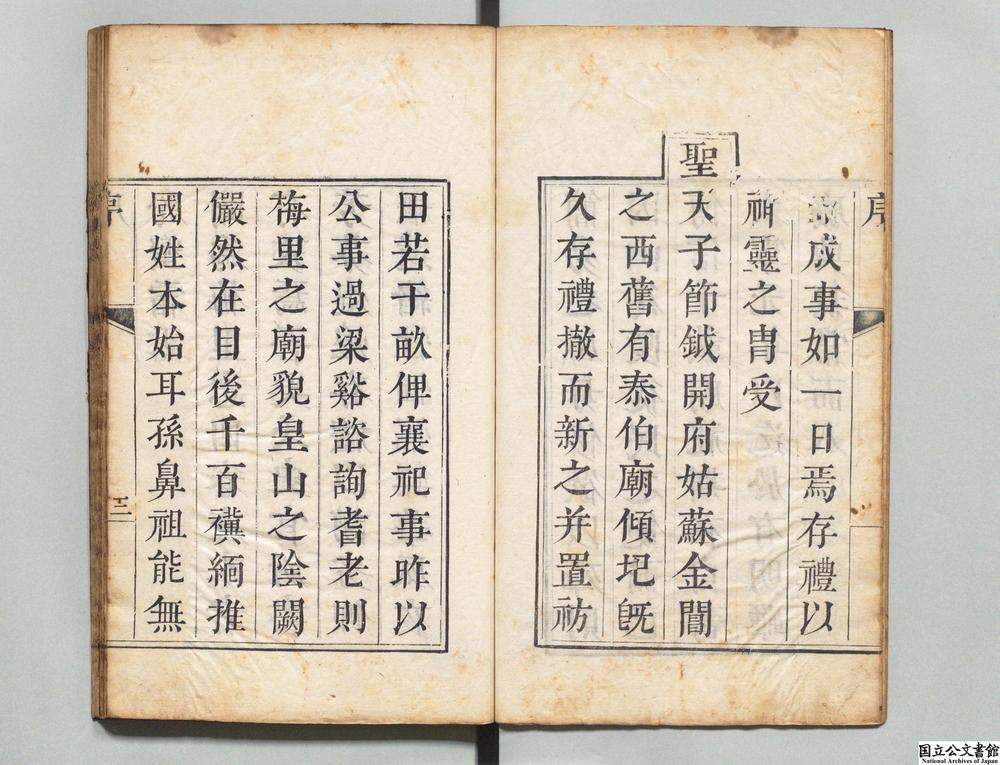 序
成事如一日焉存禮以
神靈之冑受
聖天子節鉞開府姑蘇金閶
之西舊有泰伯廟傾圯旣
久存禮撤而新之并置祊
田若干畝俾襄祀事昨以
公事過梁谿諮詢耆老則
梅里之廟貌皇山之陰闕
儼然在目後千百禩緬推
國姓本始耳孫鼻祖能無
序
三
国立公文書館
National Archives of Japan